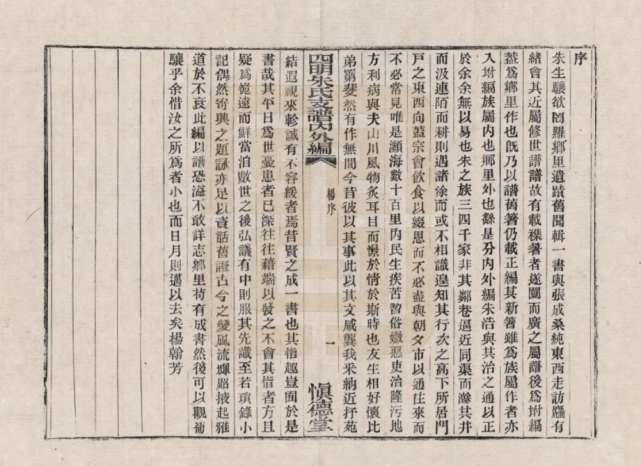 序
朱生驥欲網羅鄉里遺蹟舊聞輯一書與張成桑純東西走訪廳有
緒會其近屬修世譜譜故有載穅著者遂闢而廣之屬譜後爲坿編
蓋爲鄉里作也旣乃以譜舊箸仍載正編其新箸雖爲族屬作者亦
入坿編族屬內也鄉里外也緜是分內外編朱浩與其治之通以正
於余余無以易也朱之族三四千家非其鄰巷逼近同渠而瀚其井
而汲連陌而耕則遇諸涂而或不相識遑知其行次之高下所居門
戸之東西向蓋宗會飮食以綴恩而不必盡與朝夕市以通往來而
不必常見唯是瀕海數十百里內民生疾苦習俗媺惡吏治隆污地
方利病與夫山川風物炙耳目而縈於情於斯時也友生相好懷比
弟罽斐然有作無閒今昔彼以其事此以其文咸龔我釆納近抒苑
結遐視來軫誠有不容緩者焉昔賢之成一書也其恉趣豈面於是
書哉其平日爲世憂患者已深往往藉端以發之不會其恉者方且
疑爲飽遠而鮮當洎數世之後弘議有中則服其先識至若瑣錄小
記偶然寄興之題詠亦足以資話舊證古今之變風流輝賜掖起雅
道於不衰此編以譜恐溢不敢詳志鄉里苟有成書然後可以觀備
驥乎余惜汝之所爲者小也而日月則邁以去矣楊翰芳
四明朱氏支譜內外編
楊序
一
愼德堂